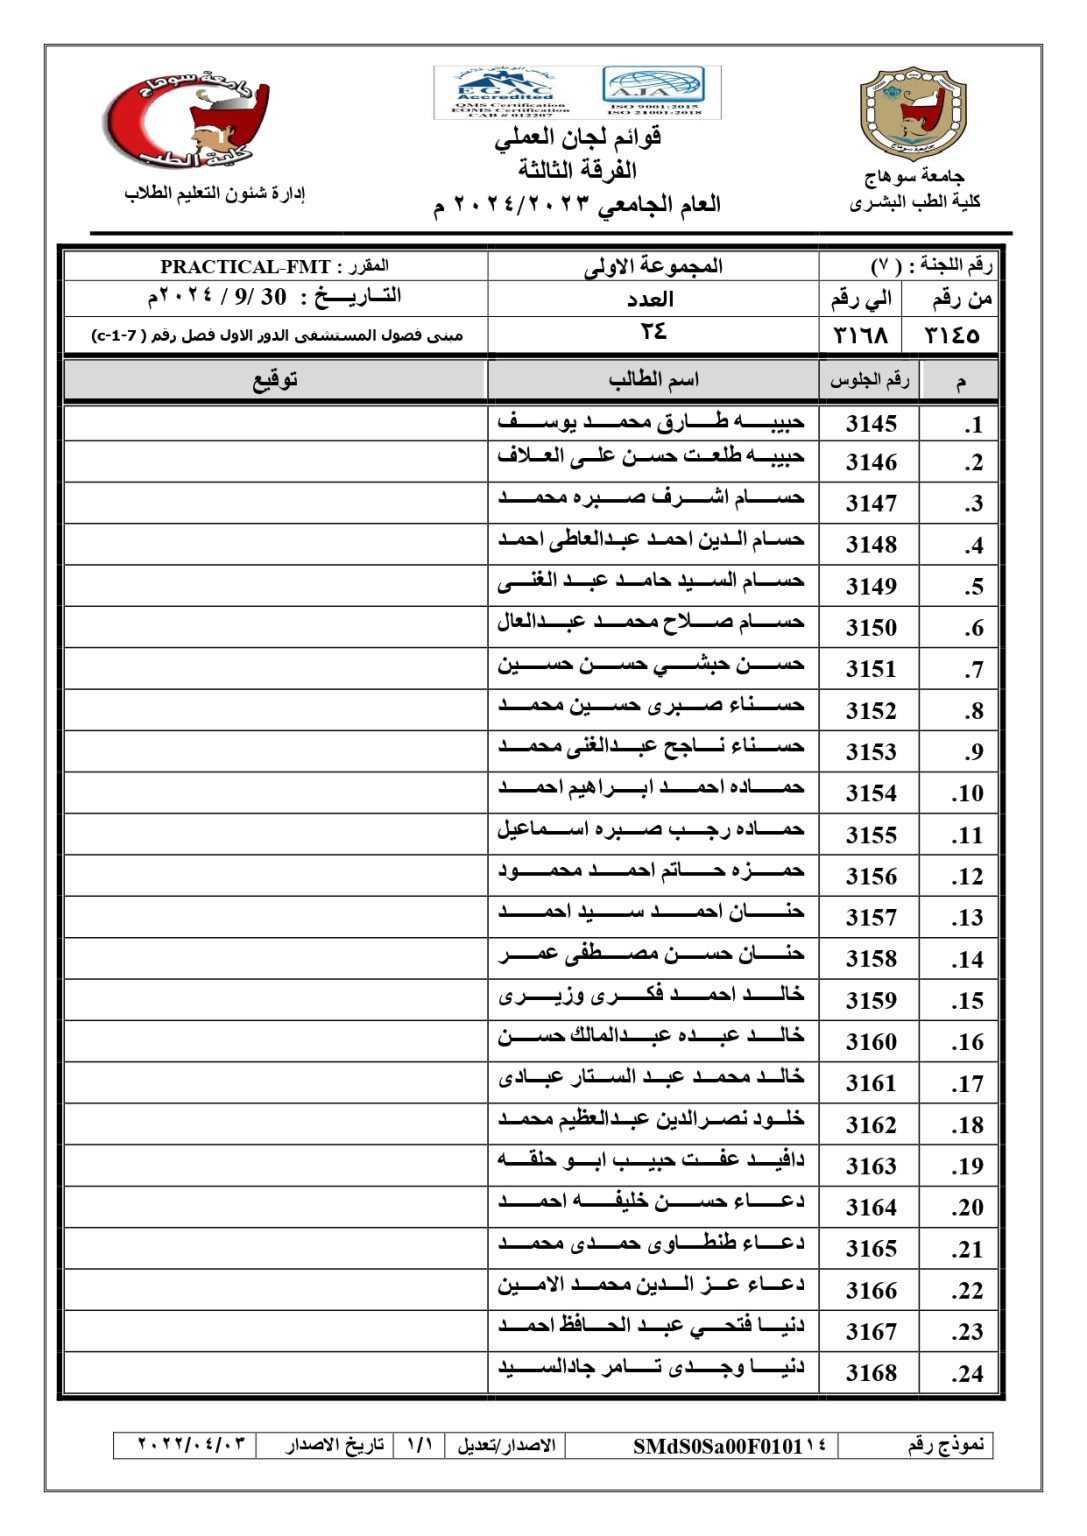 جامعة سوهاج
كلية الطب
إدارة شئون التعليم الطلاب
EGAC
Accredited
QMS Certification
EOMS Certification
CAB # 012207
AJA
ISO 9001:2015
ISO 21001:2018
قوائم لجان العملي
الفرقة الثالثة
العام الجامعي ٢٠٢٤/٢٠٢٣ م
جامعة سوهاج
جامعة سوهاج
كلية الطب البشرى
رقم اللجنة : ( ٧) المجموعة الاولى المقرر : PRACTICAL-FMT
من رقم الي رقم العدد التاريخ : 30 /9 / ٢٠٢٤م
٣١٤٥ ٣١٦٨ ٢٤ مبنى فصول المستشفى الدور الاول فصل رقم ( c-1-7)
م رقم الجلوس اسم الطالب توقيع
1. 3145 حبيبه طارق محمد يوسف
2. 3146 حبيبه طلعت حسن على العلاف
3. 3147 حسام اشرف صبره محمد
4. 3148 حسام الدين احمد عبدالعاطى احمد
5. 3149 حسام السيد حامد عبد الغنى
6. 3150 حسام صلاح محمد عبدالعال
7. 3151 حسن حبشي حسن حسين
8. 3152 حسناء صبرى حسين محمد
9. 3153 حسناء ناجح عبدالغنى محمد
10. 3154 حماده احمد ابراهيم احمد
11. 3155 حماده رجب صبره اسماعيل
12. 3156 حمزه حاتم احمد محمود
13. 3157 حنان احمد سيد احمد
14. 3158 حنان حسن مصطفى عمر
15. 3159 خالد احمد فكرى وزيرى
16. 3160 خالد عبده عبدالمالك حسن
17. 3161 خالد محمد عبد الستار عبادى
18. 3162 خلود نصرالدين عبدالعظيم محمد
19. 3163 دافيد عفت حبيب ابو حلقه
20. 3164 دعاء حسن خليفه احمد
21. 3165 دعاء طنطاوى حمدى محمد
22. 3166 دعاء عز الدين محمد الامين
23. 3167 دنيا فتحي عبد الحافظ احمد
24. 3168 دنيا وجدى تامر جادالسيد
نموذج رقم SMdS0Sa00F0101١٤ الاصدار/تعديل ١/١ تاريخ الاصدار ٢٠٢٢/٠٤/٠٣